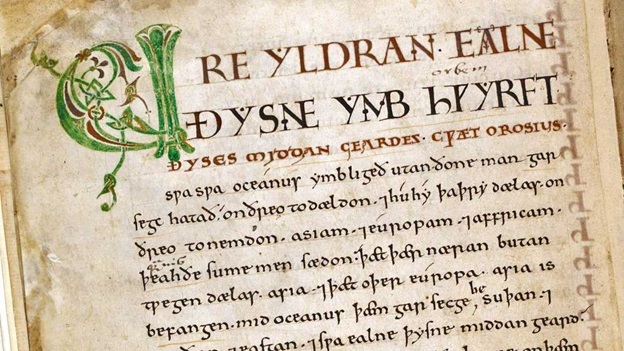 URE YLDRAN · EALNE
orbem
ÐYSNE YMB HǷYRFT
ÐYSES MIDDAN GEARDES · CǷÆT OROSIUS ·
sƿa sƿa oceanus ymbligeð utan ðone man gar
segc hatað · on ðreo todældon · ⁊ hu hy þa þry dælas · on
ðreo tonemdon · asiam · ⁊ európam · ⁊ affricam ·
þeah ðe sume men sædon · þæt þær næran butan
tƿegen dælas · asia · ⁊ þæt oþer európa · asia is
be
befangen · mid oceanus þæm gar secge, suþan · ⁊
⁊ eastan · ⁊ sƿa ealne þysne middan geard ·